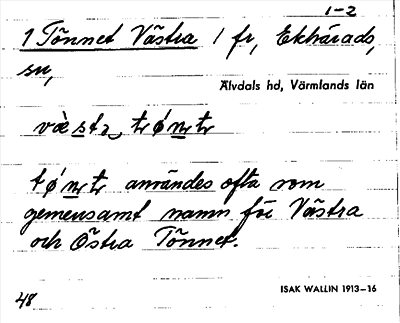 1-2
1 Tönnet Västra 1 fr, Ekshärads,
sn,
Älvdals hd, Värmlands län
användes ofta som
gemensamt namn för Västra
och Östra Tönnet.
ISAK WALLIN 1913–16
48